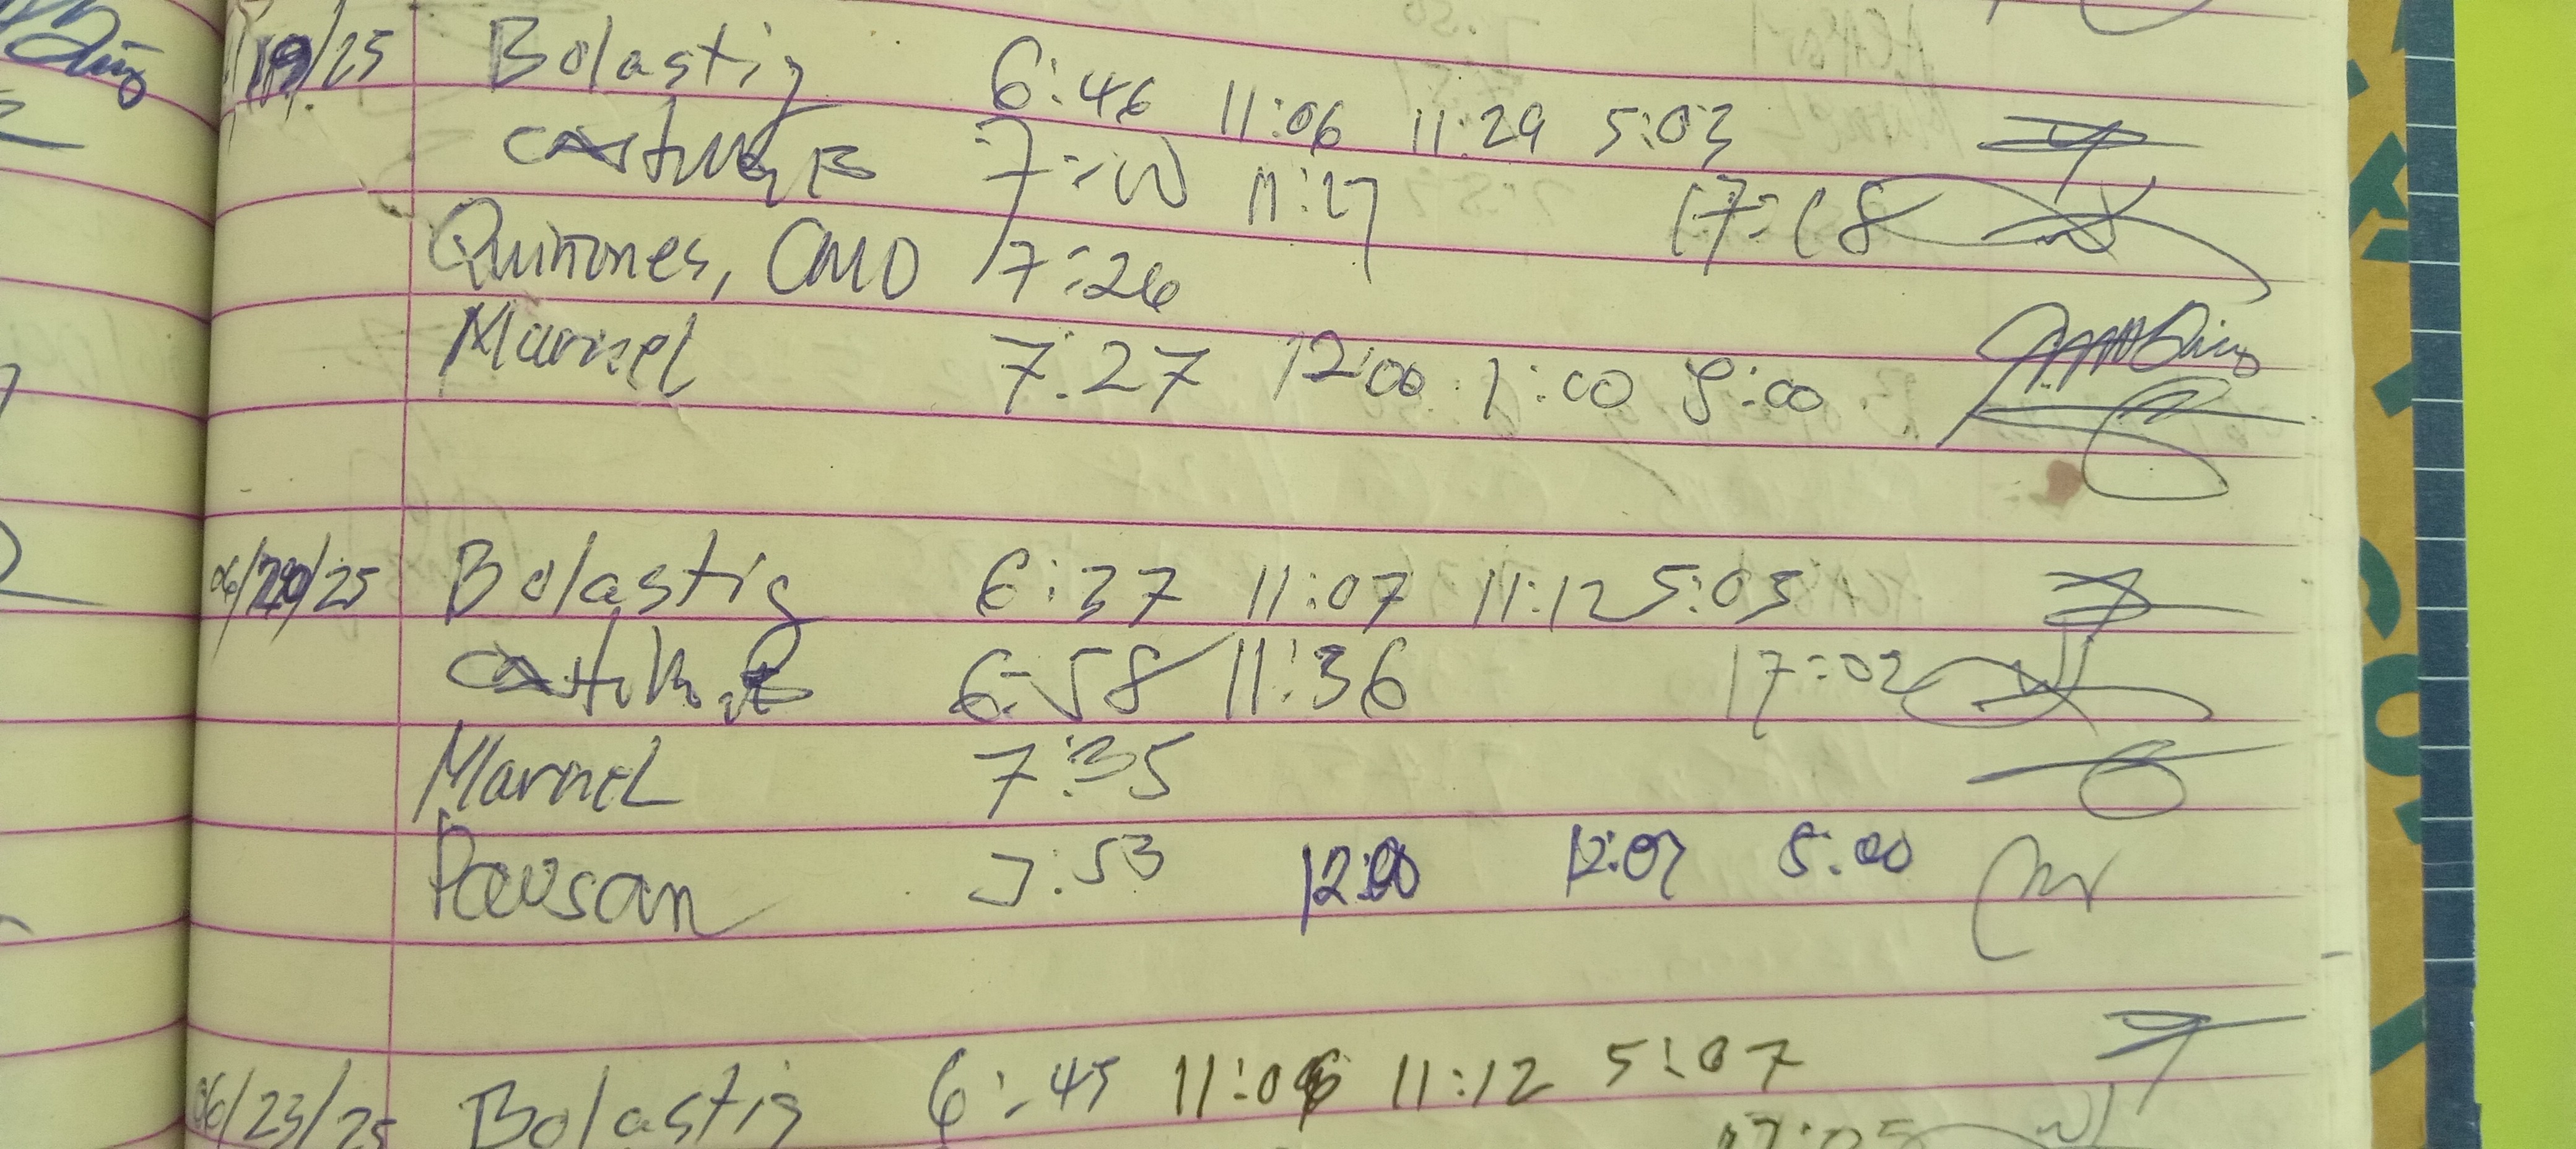 /19/25 Bolastig 6:46 11:06 11:29 5:03
7:00 11:27 17:18
Quinones, CMO 7:26
Marnel 7:27 12:00 1:00 5:00
06/20/25 Bolastig 6:37 11:07 11:12 5:05
6:58 11:36 17:02
Marnel 7:35
7:53 12:00 12:07 5:00
06/23/25 Bolastig 6:45 11:06 11:12 5:07
17:05